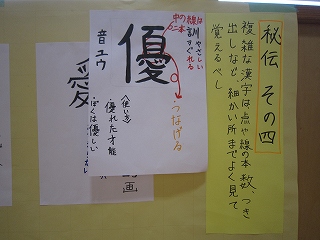 秘伝 その四
複雑な漢字は点や線の本数、つき
出しなど、細かい所までよく見て
覚えるべし
中の線は
二本
訓 やさしい
すぐれる
優
音ユウ
つなげる
〈使い方〉
優れた才能
ぼくは優しい
愛
画